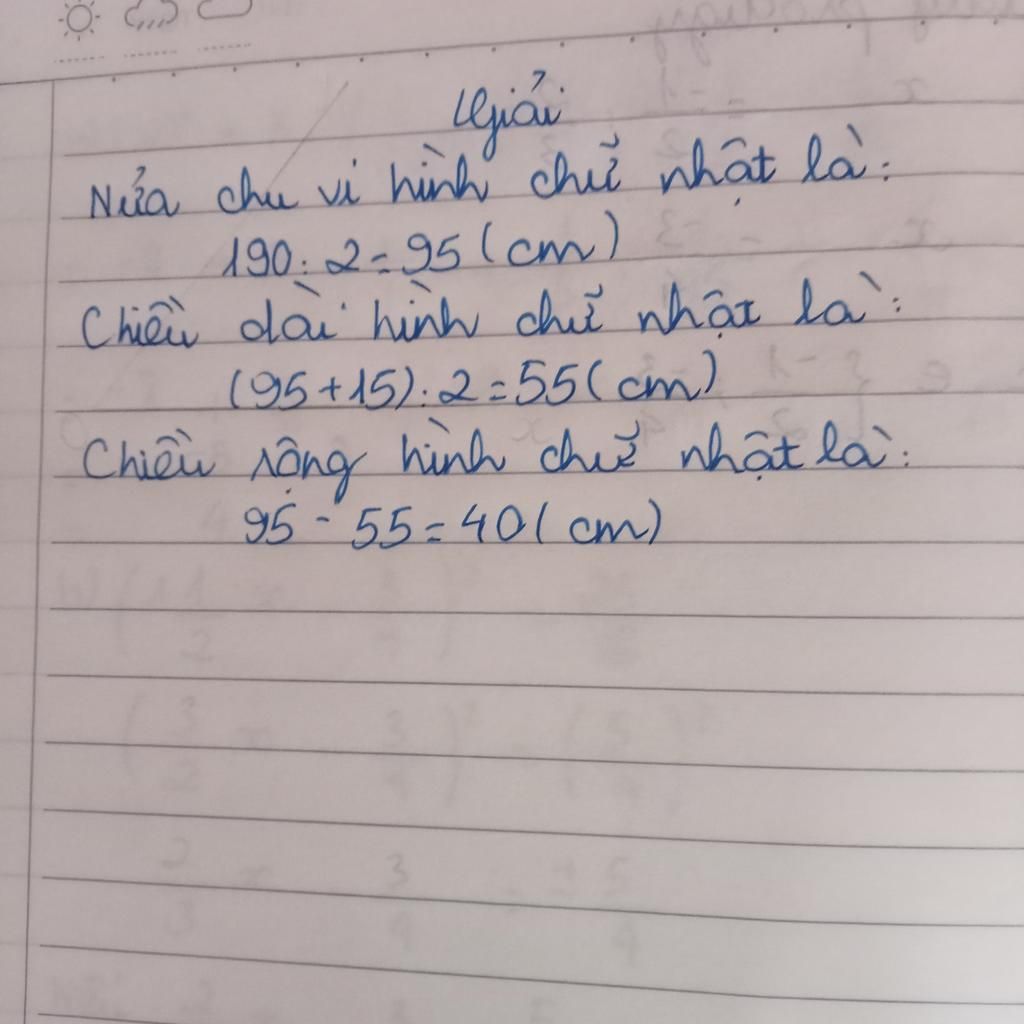 Giải
Nửa chu vi hình chữ nhật là:
190 : 2 = 95 (cm)
Chiều dài hình chữ nhật là:
(95 + 15) : 2 = 55 (cm)
Chiều rộng hình chữ nhật là:
95 - 55 = 40 (cm)